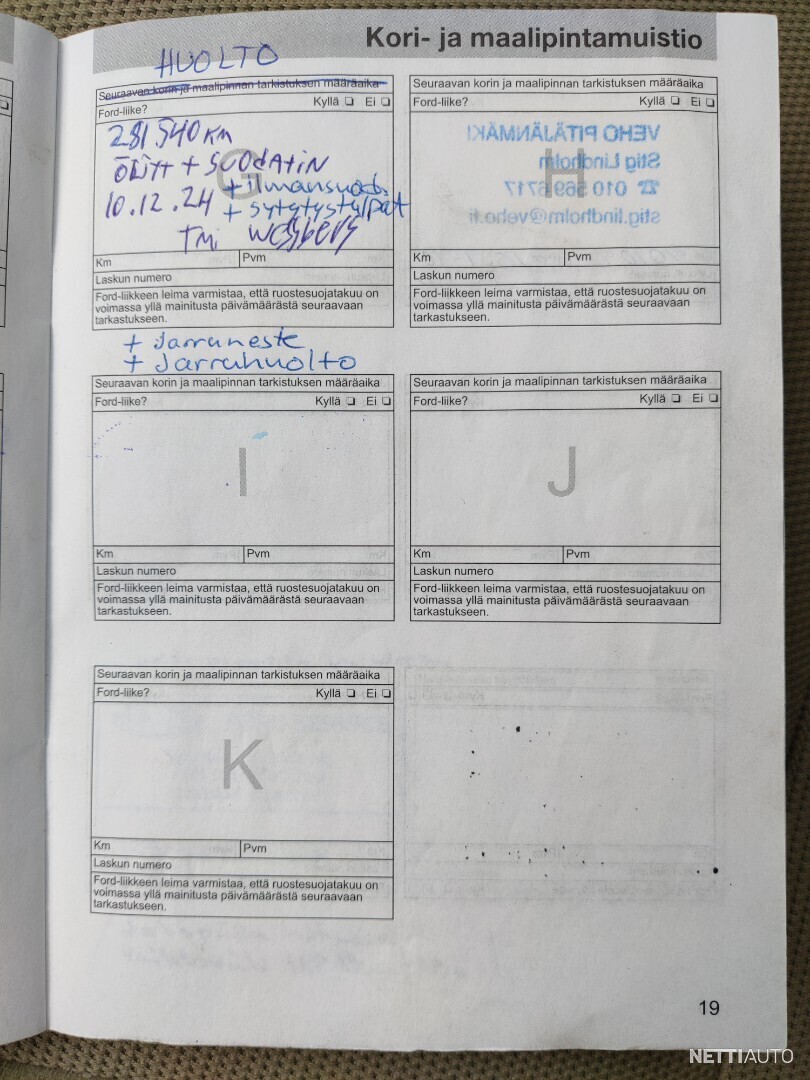 Kori- ja maalipintamuistio
HUOLTO
Seuraavan korin ja maalipinnan tarkistuksen määräaika
Ford-liike? Kyllä ❏ Ei ❏
281 540 KM
ÖLJYT + SUODATIN
10.12.24 + ilmansuod.
+ sytytystulpat
Tmi
G
Km Pvm
Laskun numero
Ford-liikkeen leima varmistaa, että ruostesuojatakuu on
voimassa yllä mainitusta päivämäärästä seuraavaan
tarkastukseen.
+ Jarruneste
+ Jarruhuolto
Seuraavan korin ja maalipinnan tarkistuksen määräaika
Ford-liike? Kyllä ❏ Ei ❏
VEHO PITÄJÄNMÄKI
Stig Lindholm
☎ 010 569 6717
stig.lindholm@veho.fi
H
Km Pvm
Laskun numero
Ford-liikkeen leima varmistaa, että ruostesuojatakuu on
voimassa yllä mainitusta päivämäärästä seuraavaan
tarkastukseen.
Seuraavan korin ja maalipinnan tarkistuksen määräaika
Ford-liike? Kyllä ❏ Ei ❏
I
Km Pvm
Laskun numero
Ford-liikkeen leima varmistaa, että ruostesuojatakuu on
voimassa yllä mainitusta päivämäärästä seuraavaan
tarkastukseen.
Seuraavan korin ja maalipinnan tarkistuksen määräaika
Ford-liike? Kyllä ❏ Ei ❏
J
Km Pvm
Laskun numero
Ford-liikkeen leima varmistaa, että ruostesuojatakuu on
voimassa yllä mainitusta päivämäärästä seuraavaan
tarkastukseen.
Seuraavan korin ja maalipinnan tarkistuksen määräaika
Ford-liike? Kyllä ❏ Ei ❏
K
Km Pvm
Laskun numero
Ford-liikkeen leima varmistaa, että ruostesuojatakuu on
voimassa yllä mainitusta päivämäärästä seuraavaan
tarkastukseen.
19
NETTIAUTO